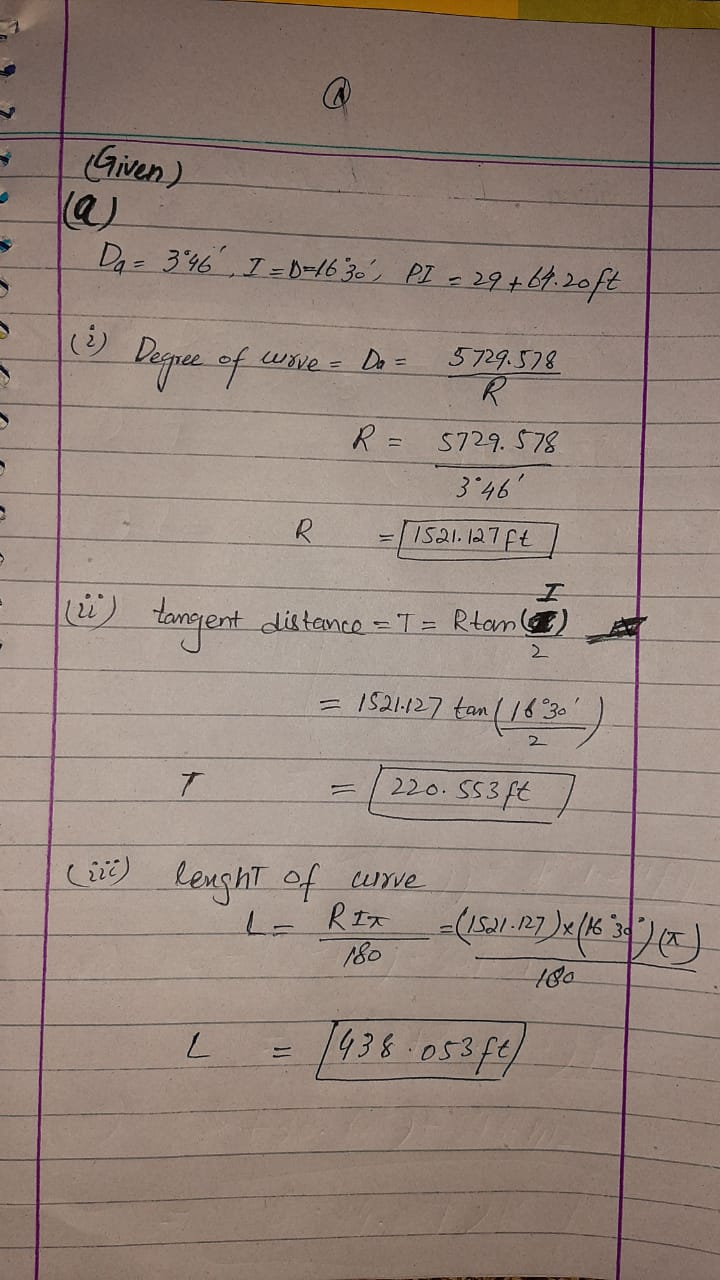 Q
(Given)
(a)
Da = 3°46', I = D=16°30', PI = 29 + 64.20ft
(i) Degree of curve = Da = 5729.578
R
R = 5729.578
3°46'
R = 1521.127 ft
(ii) tangent distance = T = Rtan(I)
2
= 1521.127 tan(16°30')
2
T = 220.553 ft
(iii) lenghT of curve
L = RIπ = (1521.127)x(16°30')(π)
180 180
L = 438.053 ft